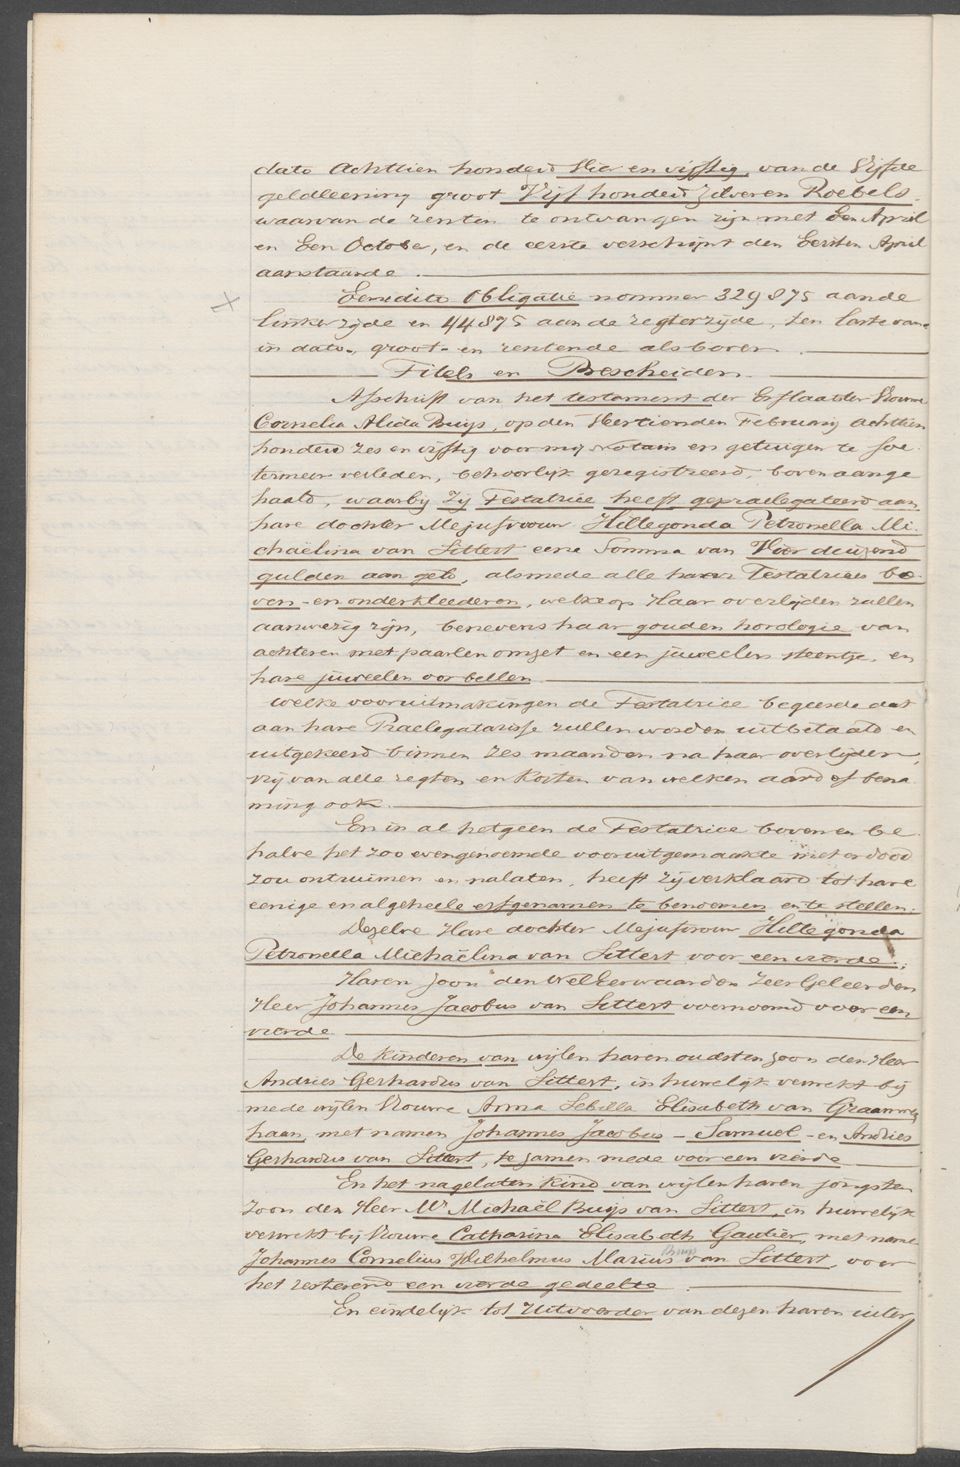 dato Achttien honderd Vier en vijftig, van de Vijfde
geldleening groot Vijf honderd Zilveren Roebels.
waarvan de renten te ontvangen zijn met Een April
en Een October, en de eerste verschijnt den Eersten April
aanstaande.
Eene dito Obligatie nommer 329875 aan de
linkerzijde en 44875 aan de regterzijde, ten laste van
in dato, groot- en rentende als boven.
Titels en Bescheiden.
Afschrift van het testament der Erflaatster Vrouwe
Cornelia Alida Buijs, op den Veertienden February achttien
honderd zes en vijftig voor mij Notaris en getuigen te Soe-
termeer verleden, behoorlijk geregistreerd, boven aange
haald, waarbij Zij Testatrice heeft geprelegateerd aan
hare dochter Mejufvrouw Hillegonda Petronella Mi-
chaëlina van Sittert eene Somma van Vier duizend
gulden aan geld, alsmede alle haar Testatrices bo-
ven- en onderkleederen, welke op Haar overlijden zullen
aanwezig zijn, benevens haar gouden horologie van
achteren met paarlen omzet en een juweelen steentje, en
hare juweelen oorbellen
welke vooruitmakingen de Testatrice begeerde dat
aan hare Praelegatarisse zullen worden uitbetaald en
uitgekeerd binnen zes maanden na haar overlijden,
vrij van alle regten en kosten van welken aard of bena
ming ook.
En in al hetgeen de Testatrice boven en be
halve het zoo evengenoemde vooruitgemaakte met er dood
zou ontruimen en nalaten, heeft zij verklaard tot hare
eenige en algeheele erfgenamen te benoemen en te stellen:
Dezelve Hare dochter Mejufvrouw Hillegonda
Petronella Michaëlina van Sittert voor een vierde;
Haren Zoon den WelEerwaarden Zeer Geleerden
Heer Johannes Jacobus van Sittert voornoemd voor een
vierde
De kinderen van wijlen haren oudsten zoon den Heer
Andries Gerhardus van Sittert, in huwelijk verwekt bij
mede wijlen Vrouwe Anna Sebilla Elisabeth van Graanwe
haan, met namen Johannes Jacobus - Samuel - en Andries
Gerhardus van Sittert, te zamen mede voor een vierde
En het nagelaten kind van wijlen haren jongsten
zoon den Heer Mr Michaël Buijs van Sittert, in huwelijk
verwekt bij Vrouwe Catharina Elisabeth Gautier, met name
Buijs
Johannes Cornelius Wilhelmus Marius van Sittert, voor
het resterend een vierde gedeelte.
En eindelijk tot Uitvoerder van dezen haren uiter